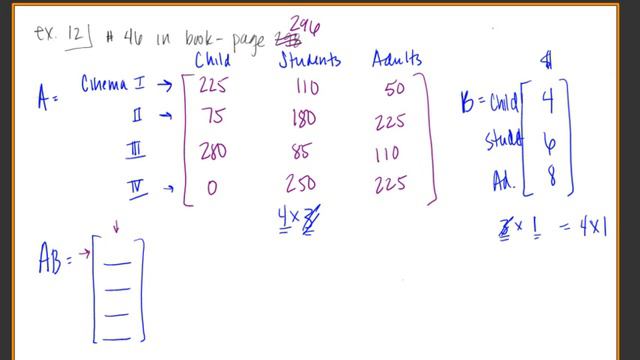 ex. 12 # 46 in book - page 298 296
Child Students Adults
A = Cinema I → 225 110 50
II → 75 180 225
III 280 85 110
IV → 0 250 225
4 x 3
$
B = Child 4
Studt 6
Ad. 8
3 x 1 = 4x1
AB =